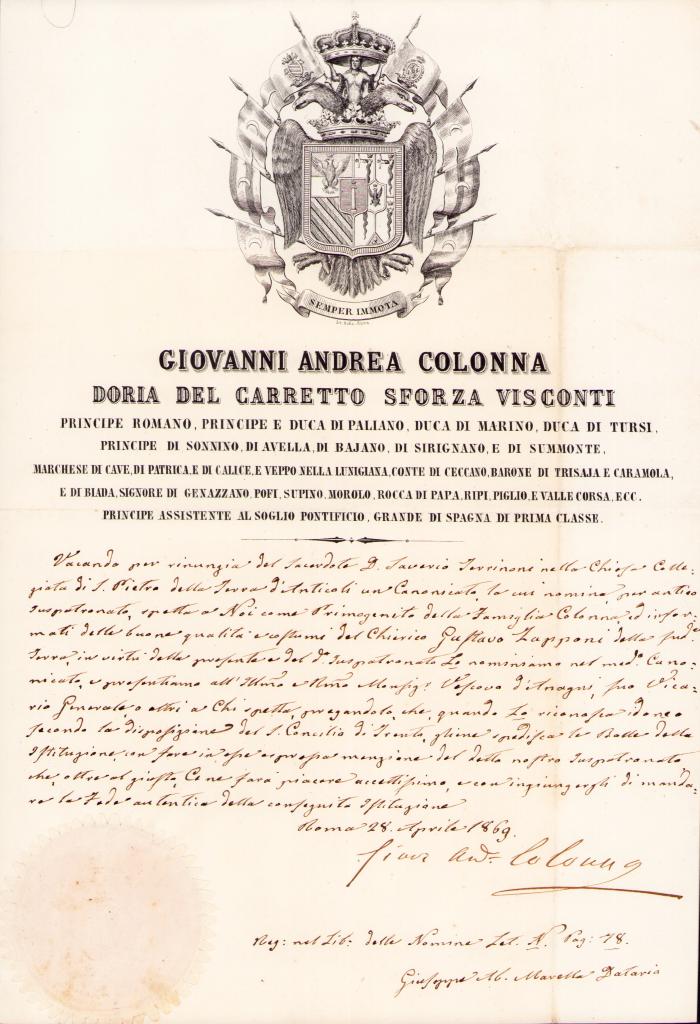 SEMPER IMMOTA
GIOVANNI ANDREA COLONNA
DORIA DEL CARRETTO SFORZA VISCONTI
PRINCIPE ROMANO, PRINCIPE E DUCA DI PALIANO, DUCA DI MARINO, DUCA DI TURSI,
PRINCIPE DI SONNINO, DI AVELLA, DI BAJANO, DI SIRIGNANO, E DI SUMMONTE,
MARCHESE DI CAVE, DI PATRICA, E DI CALICE, E VEPPO NELLA LUNIGIANA, CONTE DI CECCANO, BARONE DI TRISAJA E CARAMOLA,
E DI BIADA, SIGNORE DI GENAZZANO, POFI, SUPINO, MOROLO, ROCCA DI PAPA, RIPI, PIGLIO, E VALLE CORSA, ECC.
PRINCIPE ASSISTENTE AL SOGLIO PONTIFICIO, GRANDE DI SPAGNA DI PRIMA CLASSE.
Vacando per rinunzia del Sacerdote D. Saverio Terrinoni nella Chiesa Colle-
giata di S. Pietro della Terra d'Anticoli un Canonicato, la cui nomina, per antico
Juspatronato, spetta a Noi come Primogenito della Famiglia Colonna, ed infor-
mati delle buone qualità e costumi del Chierico Gustavo Zapponi della sud.ª
Terra, in virtù della presente e del d.º Juspatronato Lo nominiamo nel med.º Cano-
nicato, e presentiamo all'Illmo e Rmo Monsig.r Vescovo d'Anagni, suo Vica-
rio Generale, o altri a Chi spetta, pregandolo, che, quando Lo riconosca idoneo
secondo la disposizione del S. Concilio di Trento, gliene spedisca le Bolle della
Istituzione con fare in esse espressa menzione del detto nostro Juspatronato
che, oltre al giusto, Ce ne farà piacere accettissimo, e con ingiungergli di manda-
re la Fede autentica della conseguita Istituzione
Roma 28. Aprile 1869.
Giov And. Colonna
Reg: nel Lib: delle Nomine Let. N. Pag: 78.
Giuseppe Ab. Marella Datario